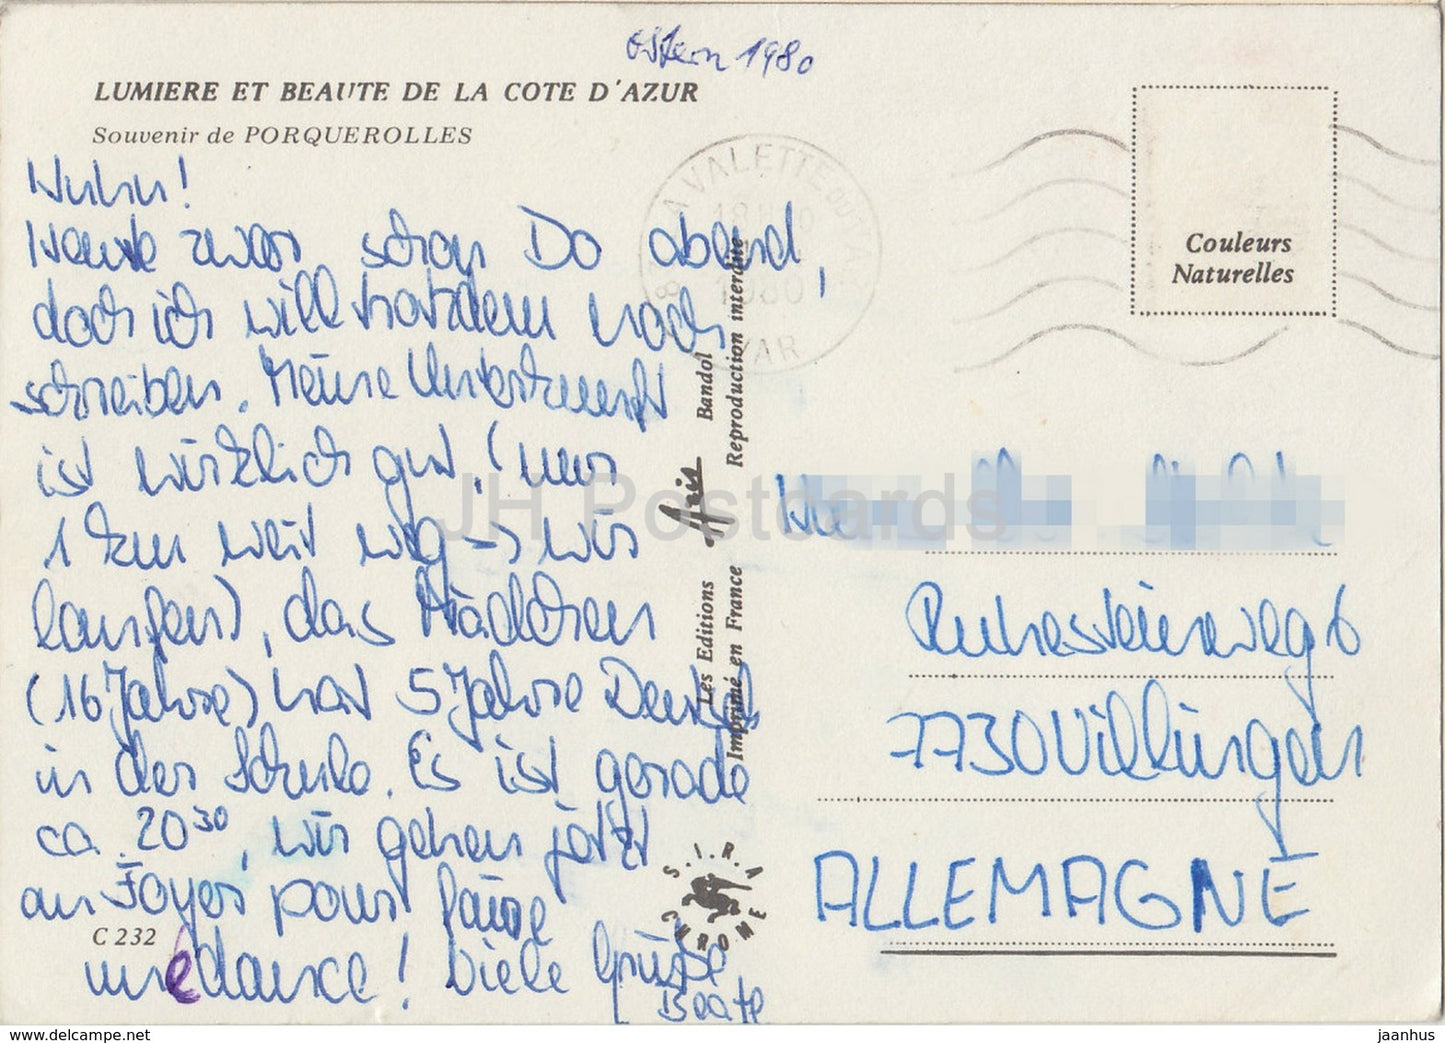 Ostern 1980
LUMIERE ET BEAUTE DE LA COTE D'AZUR
Souvenir de PORQUEROLLES
Huhu!
Heute zwar schon Do abend,
doch ich will trotzdem noch
schreiben. Meine Unterkunft
ist wirklich gut, (nur
1 km weit weg → wir
laufen), das Mädchen
(16 Jahre) hat 5 Jahre Deutsch
in der Schule. Es ist gerade
ca. 20³⁰, wir gehen jetzt
an Foyer pour faire
une dance! Viele Grüsse
Beate
C 232
LA VALETTE DU VAR
18H
1980
83 VAR
Couleurs
Naturelles
Les Editions Aris Bandol
Imprimé en France Reproduction interdite
S.I.R.A.
CHROME
Ruhesteinweg 6
7730 Villingen
ALLEMAGNE
JH Postcards
https://www.delcampe.net
jaanhus